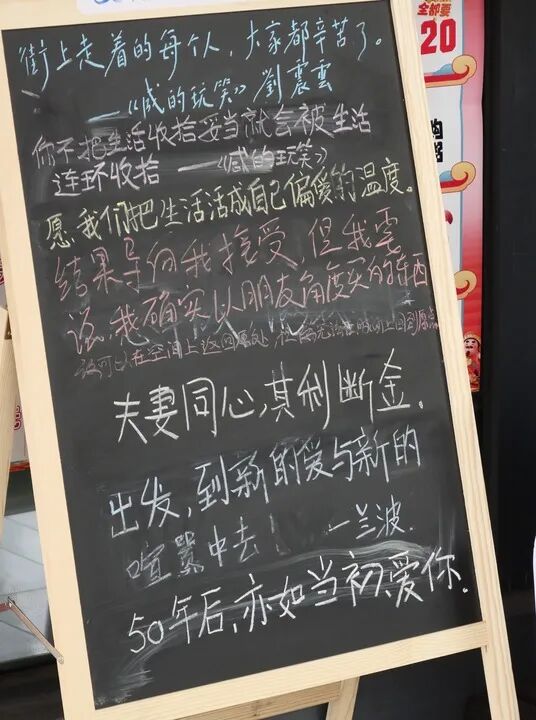 街上走着的每个人，大家都辛苦了。
——《咸的玩笑》劉震雲
你不把生活收拾妥当就会被生活
连环收拾 ——《咸的玩笑》
愿我们把生活活成自己偏爱的温度。
结果导向我接受，但我要
说，我确实以朋友角度买的东西
你可以在空间上返回原处，在时间上回到原点
夫妻同心，其利断金。
出发，到新的爱与新的
喧嚣中去！ —兰波.
50年后，亦如当初，爱你.
全部要
20